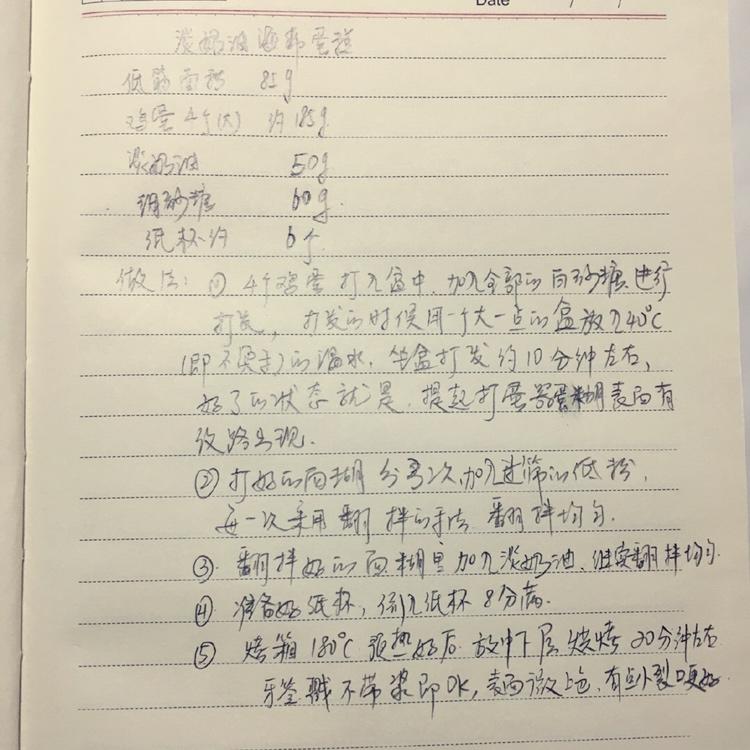 Date / /
淡奶油海绵蛋糕
低筋面粉 85g
鸡蛋4个(大) 约185g
淡奶油 50g
细砂糖 60g
纸杯约 6个
做法: ① 4个鸡蛋打入盆中, 加入全部的白砂糖进行
打发, 打发的时候用一个大一点的盆放入40℃
(即不烫手)的温水, 坐盆打发约10分钟左右,
好了的状态就是, 提起打蛋器蛋糊表面有
纹路出现.
② 打好的面糊分3次,加入过筛的低粉,
每一次采用翻拌的手法 翻拌均匀.
③ 翻拌好的面糊里加入淡奶油, 继续翻拌均匀.
④ 准备好纸杯, 倒入纸杯8分满.
⑤ 烤箱180℃预热好后 放中下层烘烤20分钟左右
牙签戳不带浆即OK, 表面微上色, 有点小裂口更好